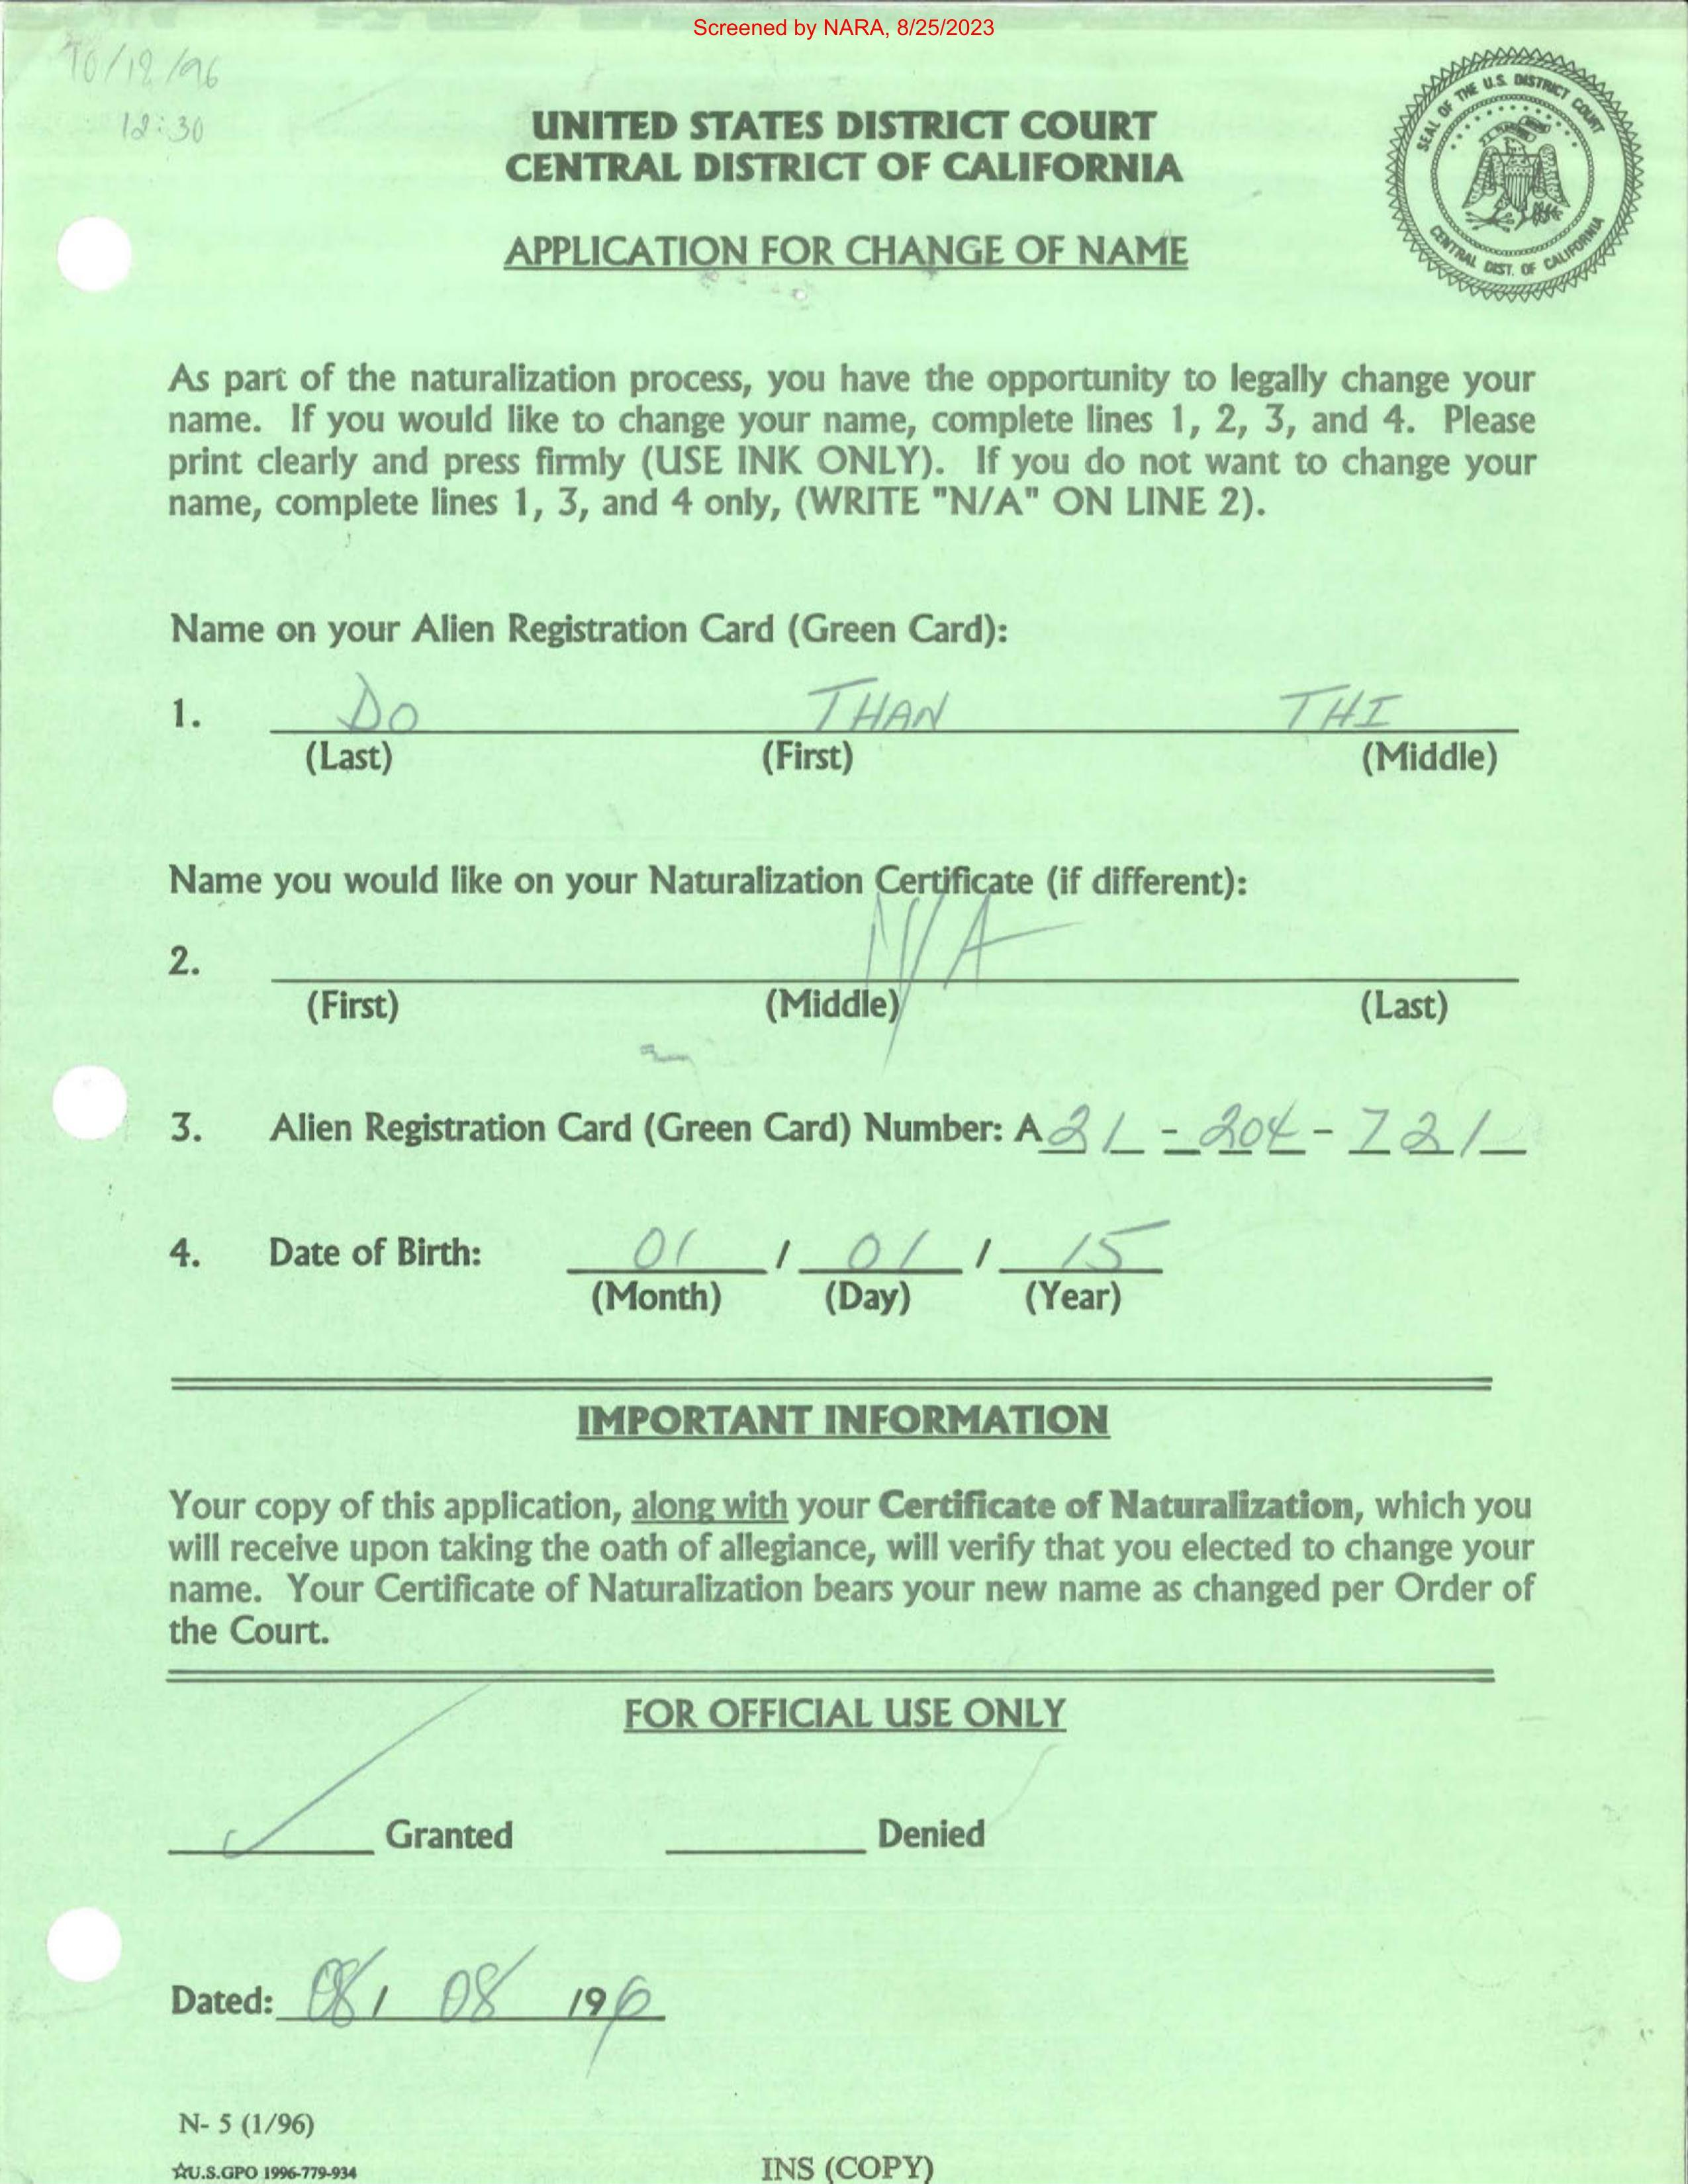 Screened by NARA, 8/25/2023
10/12/96
12:30
SEAL OF THE U.S. DISTRICT COURT
CENTRAL DIST. OF CALIFORNIA
UNITED STATES DISTRICT COURT
CENTRAL DISTRICT OF CALIFORNIA
APPLICATION FOR CHANGE OF NAME
As part of the naturalization process, you have the opportunity to legally change your
name. If you would like to change your name, complete lines 1, 2, 3, and 4. Please
print clearly and press firmly (USE INK ONLY). If you do not want to change your
name, complete lines 1, 3, and 4 only, (WRITE "N/A" ON LINE 2).
Name on your Alien Registration Card (Green Card):
1. DO THAN THI
(Last) (First) (Middle)
Name you would like on your Naturalization Certificate (if different):
2. N/A
(First) (Middle) (Last)
3. Alien Registration Card (Green Card) Number: A 21 - 204 - 721
4. Date of Birth: 01 / 01 / 15
(Month) (Day) (Year)
IMPORTANT INFORMATION
Your copy of this application, along with your Certificate of Naturalization, which you
will receive upon taking the oath of allegiance, will verify that you elected to change your
name. Your Certificate of Naturalization bears your new name as changed per Order of
the Court.
FOR OFFICIAL USE ONLY
Granted Denied
Dated: 08/ 08 /96
N- 5 (1/96)
☆U.S.GPO 1996-779-934
INS (COPY)